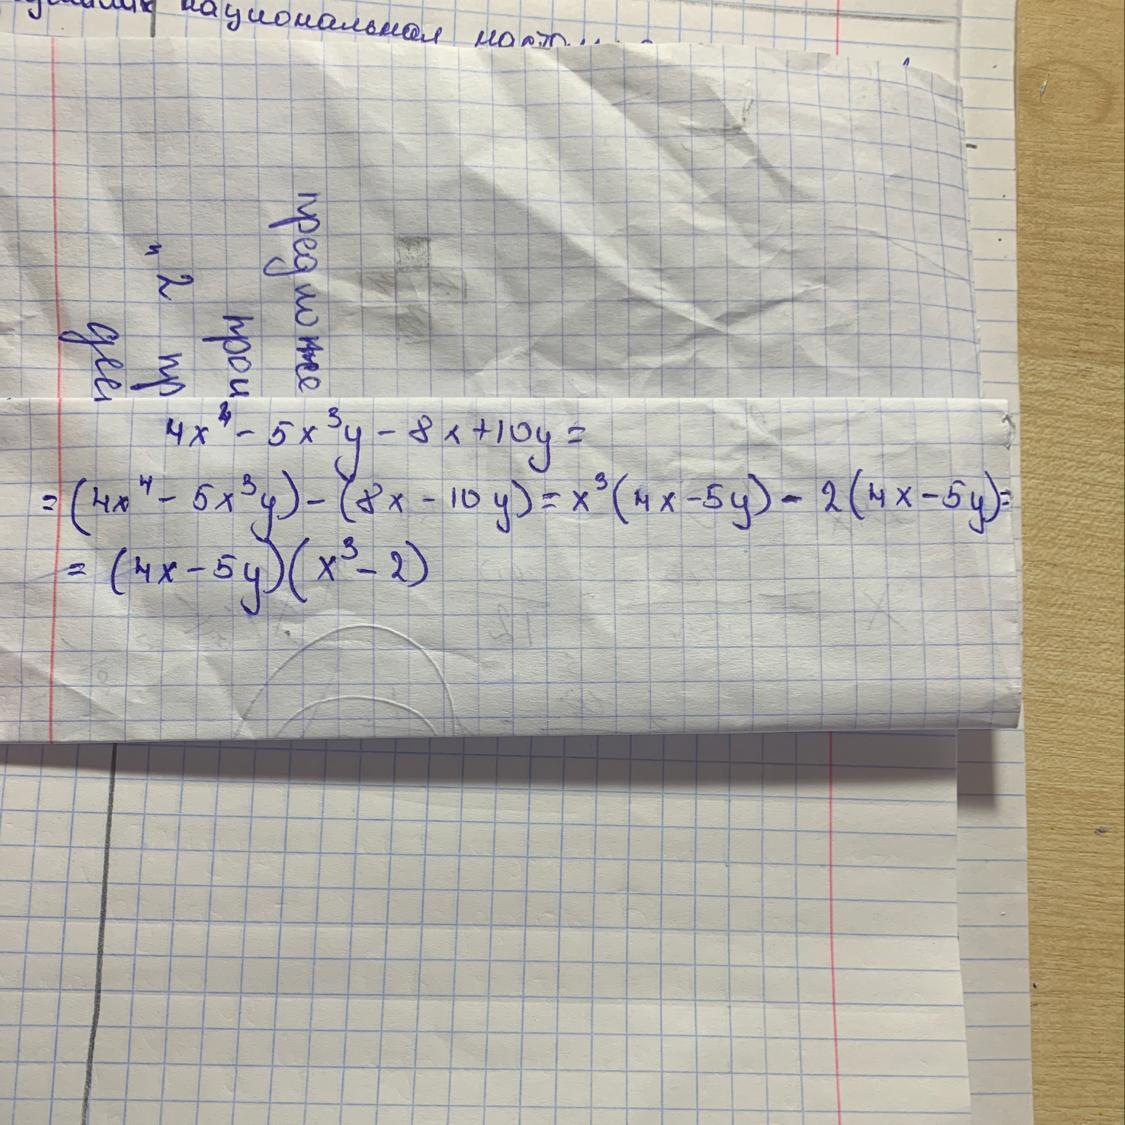 национальная
предложе
прои
"2 пр
4x⁴ - 5x³y - 8x + 10y =
= (4x⁴ - 5x³y) - (8x - 10y) = x³(4x - 5y) - 2(4x - 5y) =
= (4x - 5y)(x³ - 2)